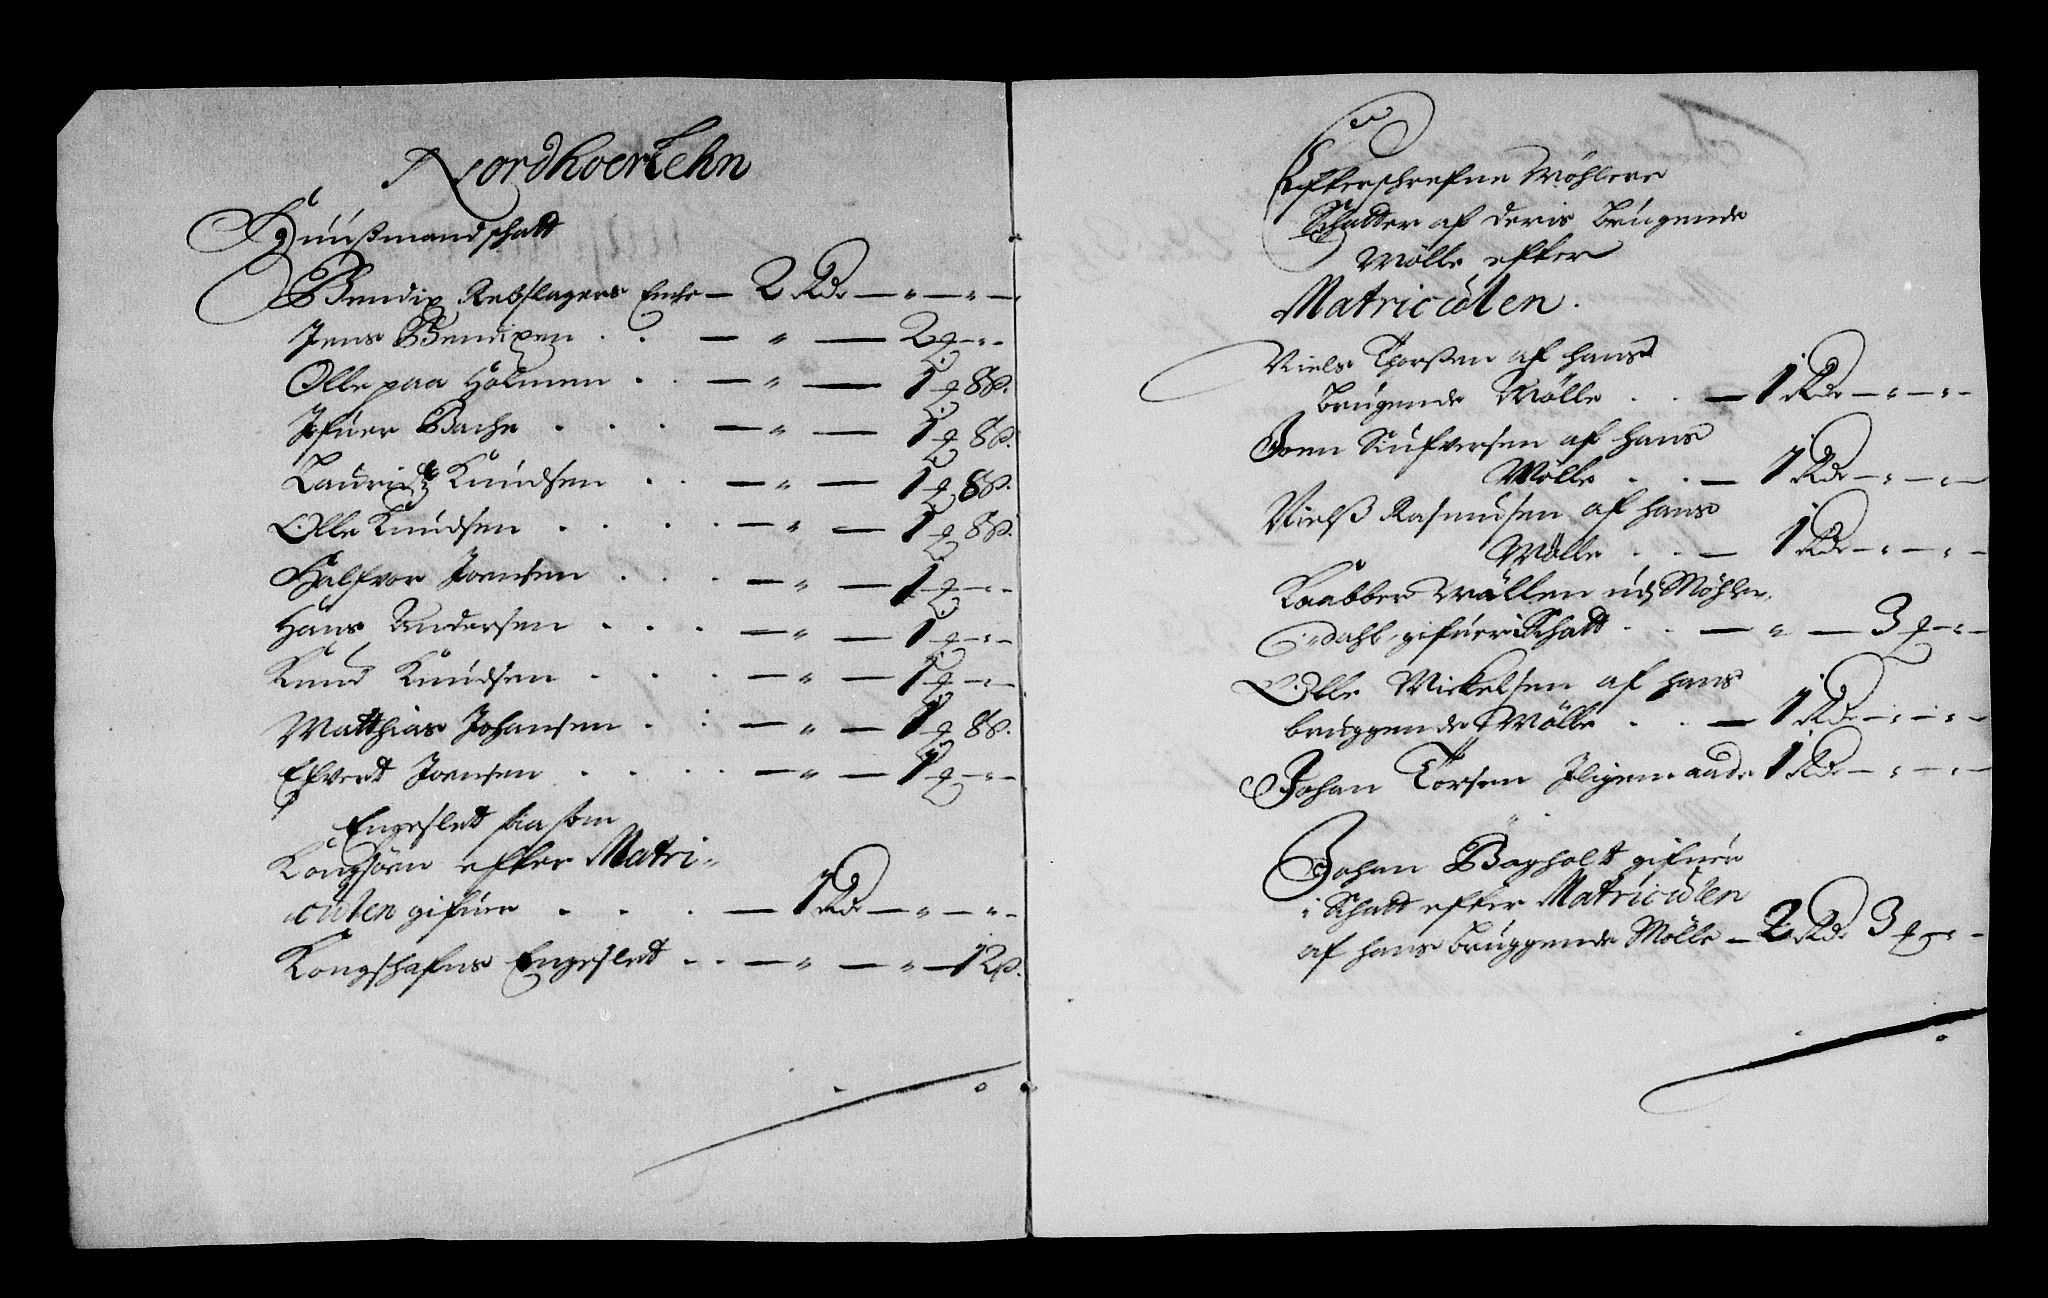 Nordhoer Lehn
Huußmand schatt
Bendix Rebslagers Encke — 2 Rdr — " — " —
Jens Bendixen . . — " — 2 ꝗ — " —
Olle paa Holmen . . — " — 1 ꝗ 8 ß.
Ifuer Bache . . . — " — 1 ꝗ 8 ß.
Lauridtz Knudsen . . — " — 1 ꝗ 8 ß.
Olle Knudsen . . . . — " — 1 ꝗ 8 ß.
Halfvor Joensen . . . — " — 1 ꝗ — " —
Hans Andersen . . . — " — 1 ꝗ — " —
Knud Knudsen . . . — " — 1 ꝗ — " —
Matthias Johansen . . — " — 1 ꝗ 8 ß.
Efvert Joensen . . . . — " — 1 ꝗ — " —
Engeslet saasom
Kongsøen efter Matri-
culen gifuer . . . — 1 Rdr — " — " —
Kongshafns Engeslet . . — " — " — 12 ß.
Efterschrefne Møhlere
Schatter af deris brugende
Mølle efter
Matriculen.
Niels Thorßen af hans
brugende Mølle . . — 1 Rdr — " — " —
Joen Siufversen af hans
Mølle . . — 1 Rdr — " — " —
Nielß Rasmusen af hans
Mølle . . — 1 Rdr — " — " —
Kaabber Møllen udj Møhle-
dahl, gifuer i Schatt . . — " — 3 ꝗ — " —
Olle Mickelsen af hans
bruggende Mølle . . — 1 Rdr — " — " —
Johan Torsen Iligemaade 1 Rdr — " — " —
Johan Bøgholt gifuer
i Schatt efter Matriculen
af hans bruggende Mølle — 2 Rdr 3 ꝗ — " —